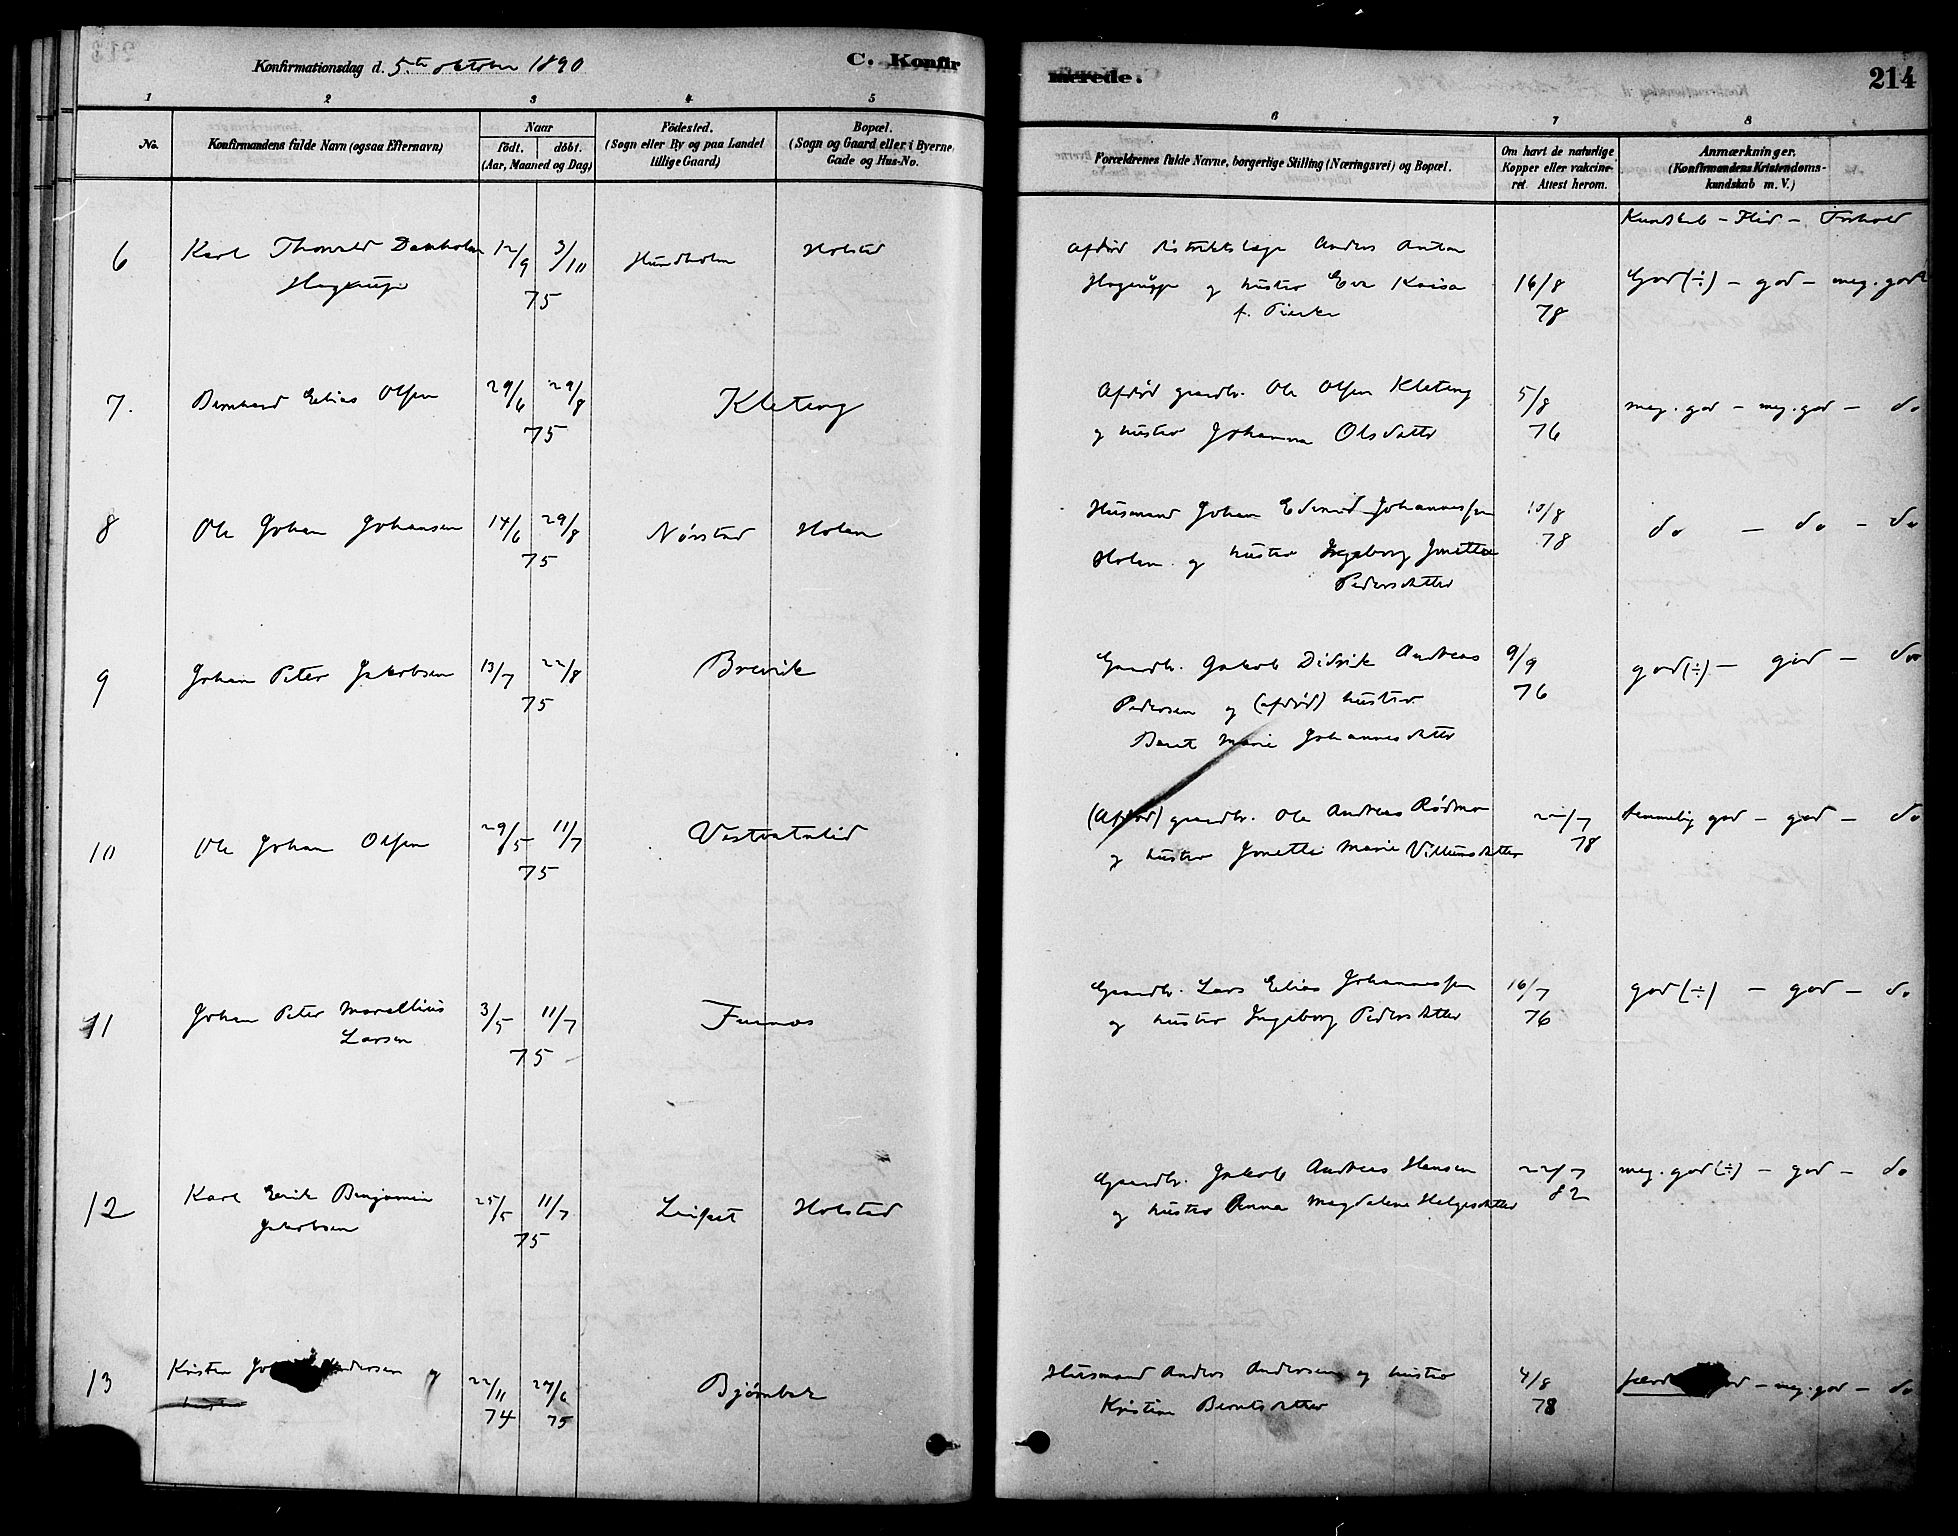 Konfirmationsdag d. 5te oktober 1890
C. Konfirmerede.
214
1 2 3 4 5 6 7 8
No.
Konfirmandens fulde Navn (ogsaa Efternavn)
Naar
födt. döbt.
(Aar, Maaned og Dag)
Födested.
(Sogn eller By og paa Landet
tillige Gaard)
Bopæl.
(Sogn og Gaard eller i Byerne,
Gade og Hus-No.
Forældrenes fulde Navne, borgerlige Stilling (Næringsvei) og Bopæl.
Om havt de naturlige
Kopper eller vakcine-
ret. Attest herom.
Anmærkninger.
(Konfirmandens Kristendoms-
kundskab m. V.)
Kundskab – Flid – Forhold
6 Karl Thorvald Danholm 12/9 3/10 Hundholm Holstad Afdød distriktslæge Anders Anton
Hagerup 75 Hagerup og hustru Eva Kaisa 16/8 God (÷) – god – meg. godt
78
7. Bernhard Elias Olsen 29/6 29/8 Kleteng Afdød gaardbr. Ole Olsen Kleteng 5/8 meg. god – meg. god – do
75 og hustru Johanna Olsdatter 76
8 Ole Johan Johansen 14/6 29/8 Nørstad Holen Husmand Johan Edvard Johannessen 10/8 do – do – do
75 Holen og hustru Ingeborg Jonetta 78
Pedersdatter
9 Johan Peter Jakobsen 13/7 22/8 Brevik Gaardbr. Jakob Didrik Andreas 9/9 god (÷) – god – do
75 Pedersen og (afdød) hustru 76
Beret Marie Johannesdatter
10 Ole Johan Olsen 29/5 11/7 Vestvatnlid (Afdød) gaardbr. Ole Andreas Rødmo 22/7 temmelig god – god – do
75 og hustru Jonette Marie Villumsdatter 78
11 Johan Peter Marellius 3/5 11/7 Furnes Gaardbr. Lars Elias Johannessen 16/7 god (÷) – god – do
Larsen 75 og hustru Ingeborg Pedersdatter 76
12 Karl Erik Benjamin 25/5 11/7 Leifset Holstad Gaardbr. Jakob Andreas Hansen 22/7 meg. god (÷) – god – do
Jakobsen 75 og hustru Anna Magdalene Helgesdatter 82
13 Kristen Andersen 22/11 27/6 Bjørnbak Husmand Anders Andersen og hustru 4/8 – meg. god – do
74 75 Kristine Berntsdatter 78